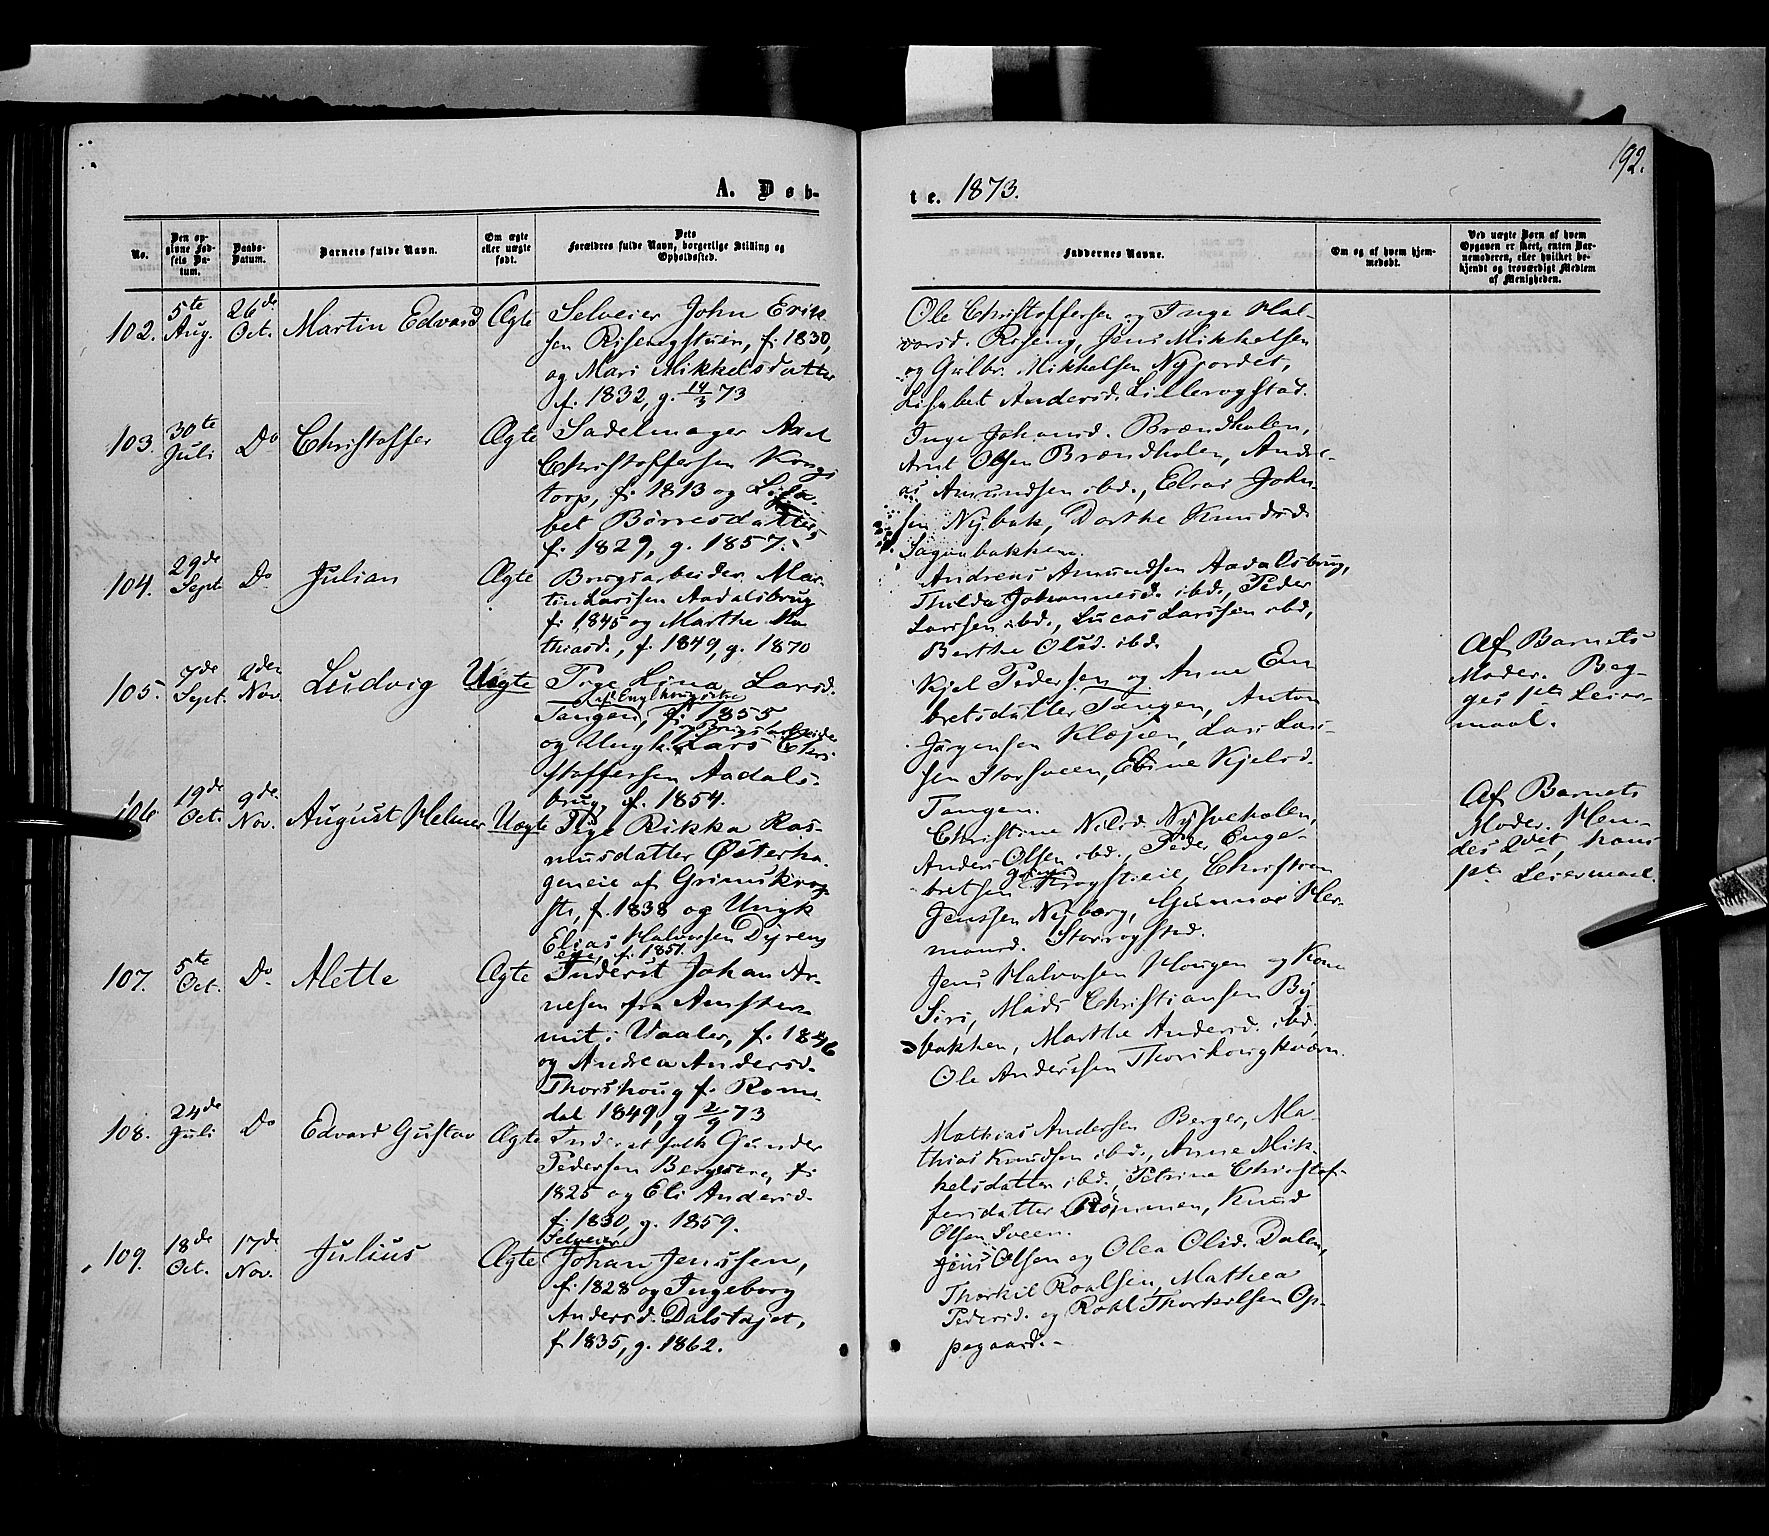 192.
A. Døb-
te. 1873.
No.
Den opgivne Fødsels Datum.
Daabs-Datum.
Barnets fulde Navn.
Om ægte eller uægte født.
Dets Forældres fulde Navn, borgerlige Stilling og Opholdssted.
Faddernes Navne.
Om og af hvem hjemmedøbt.
Ved uægte Børn af hvem Opgaven er skeet, enten Barnemoderen, eller hvilket bekjendt og troværdigt Medlem af Menigheden.
102. 5te Aug. 26de Oct. Martin Edvard Ægte
Selveier John Erik-
sen Risengstuen, f. 1830,
og Mari Mikkelsdatter
f. 1832, g. 14/3 73
Ole Christoffersen og Inge Hal-
vorsd. Roseng, Jens Mikkelsen
og Gulbr. Mikkelsen Nyjordet,
Lisabet Andersd. Lillerogstad.
103. 30te Juli Do Christoffer Ægte
Sadelmager Axel
Christoffersen Kongs
torp, f. 1813 og Lisa-
bet Børresdatter,
f. 1829, g. 1857.
Inge Johansd. Brændholen,
Arnt Olsen Brændholen, Andre-
as Amundsen ibd., Elias John-
sen Nybak, Dorthe Knudsd.
Sagenbakken.
104. 29de Sept. Do Julian Ægte
Brugsarbeider Mar-
tin Larssen Aadalsbrug
f. 1845 og Marthe Ma
thiasd., f. 1849, g. 1870
Andreas Amundsen Aadalsbrug,
Thilda Johannesd. ibd., Peder
Larssen ibd., Lucas Larssen ibd,
Berthe Olsd. ibd.
105. 7de Sept. 2den Nov. Ludvig Uægte
Pige Lina Larsd.
Tangen, f. 1855
og Ungk. Lars Chri-
stoffersen Aadals-
brug, f. 1854.
Kjel Pedersen og Anne En
bretsdatter Tangen, Anton
Jørgensen Klæpen, Lars Lars-
sen Storsveen, Eline Kjelsd.
Tangen.
Af Barnets
Moder. Beg-
ges 1ste Leier-
maal.
106 19de Oct. 9de Nov. August Helmer Uægte
Pige Rikka Ras-
musdatter Østerha-
geneie af Grimskrog
f. 1838 og Ungk
Elias Halvorsen Dyreng
eie, f. 1851.
Christine Nilsd. Nysveholen,
Anders Olsen ibd., Peder Enge-
bretsen Krogstieie, Christian
Jenssen Nyborg, Gunnor Her-
mansd. Storrogstad.
Af Barnets
Moder. Hen-
des 2det, hans
1ste Leiermaal.
107. 5te Oct. Do. Alette Ægte
Inderst Johan Ar-
nesen fra Amster
mit i Vaaler, f. 1846
og Andrea Andersd.
Thorshoug f. Rome-
dal 1849, g 2/9 73
Jens Halvorsen Hougen og Kone
Siri, Mads Christiansen By
bakken, Marthe Andersd. ibd,
Ole Anderssen Thorshougkværn.
108. 24de Juli Do Edvard Gustav Ægte
Inderstfolk Gunder
Pedersen Bergseeie, f.
1825 og Eli Andersd.
f. 1830, g. 1859.
Mathias Andersen Berger, Ma-
thias Knudsen ibd., Anne Mik-
kelsdatter ibd., Petrine Christof-
fersdatter Rømmen, Knud
Olsen Sveen.
109. 18de Oct. 17de Nov. Julius Ægte
Selveier
Johan Jenssen,
f. 1828 og Ingeborg
Andersd. Dalstøjet,
f 1835, g. 1862.
Jens Olsen og Olea Olsd. Dalen,
Thorkil Roalsen, Mathea
Pedersd. og Rohl Thorkilsen Op-
pegaard.